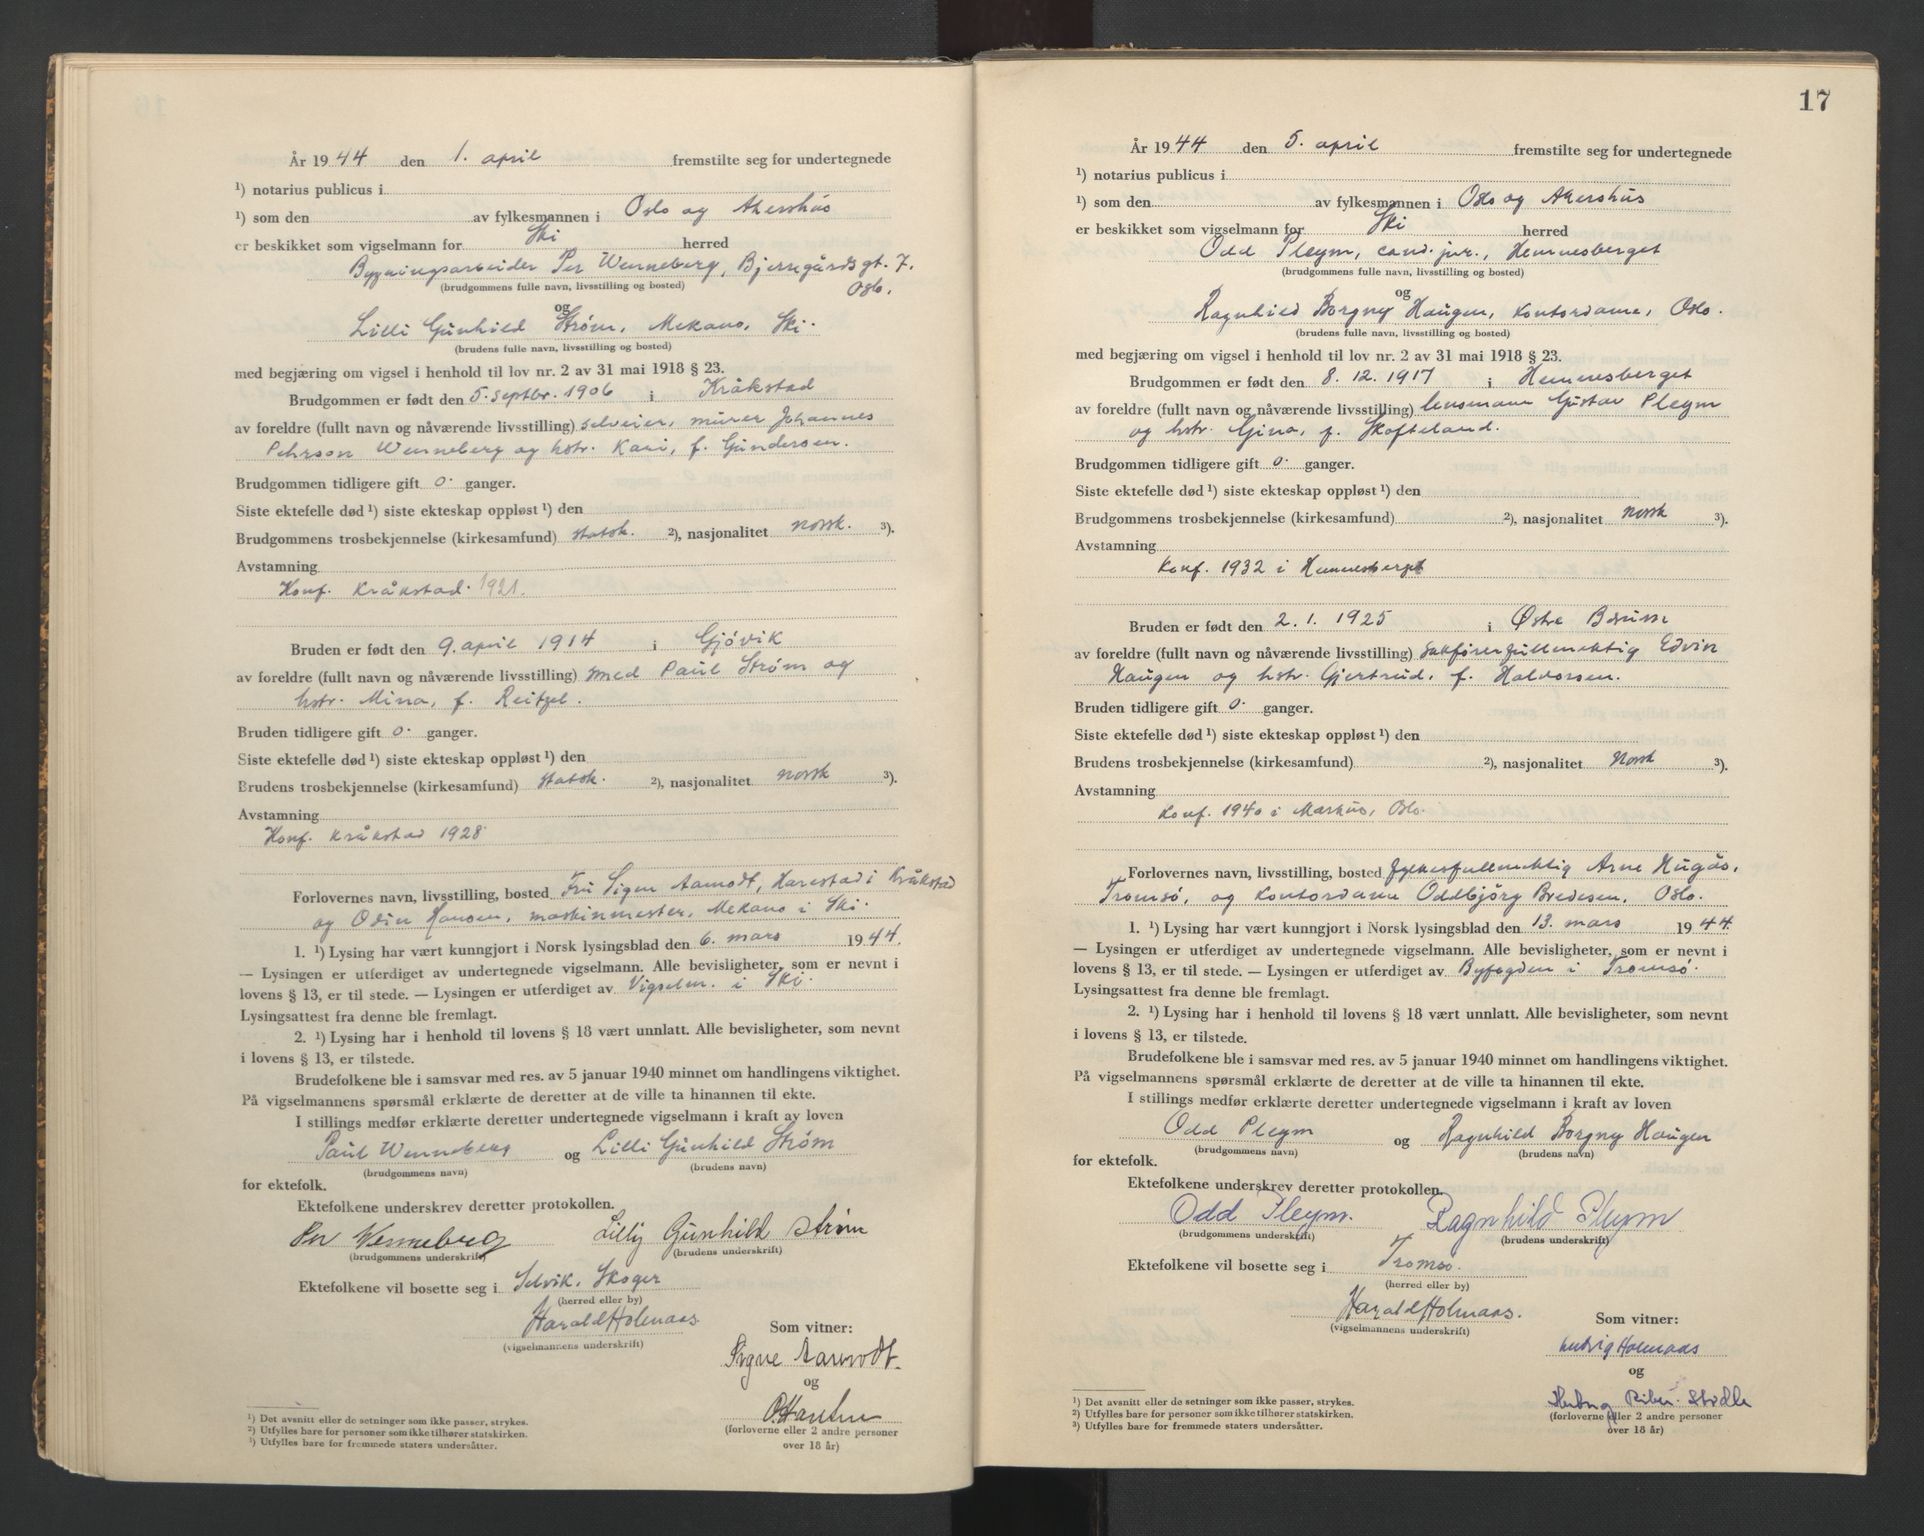 År 1944 den 1. april fremstilte seg for undertegnede
¹) notarius publicus i
¹) som den av fylkesmannen i Oslo og Akershus
er beskikket som vigselmann for Ski herred
Bygningsarbeider Per Wenneberg, Bjerregårdsgt. 7.
(brudgommens fulle navn, livsstilling og bosted) Oslo.
og
Lilli Gunhild Strøm, Mekano, Ski.
(brudens fulle navn, livsstilling og bosted)
med begjæring om vigsel i henhold til lov nr. 2 av 31 mai 1918 § 23.
Brudgommen er født den 5. septbr. 1906 i Kråkstad
av foreldre (fullt navn og nåværende livsstilling) selveier, murer Johannes
Pehrson Wenneberg og hstr. Kari, f. Gundersen.
Brudgommen tidligere gift 0. ganger.
Siste ektefelle død ¹) siste ekteskap oppløst ¹) den
Brudgommens trosbekjennelse (kirkesamfund) statsk. ²), nasjonalitet norsk. ³).
Avstamning
Konf. Kråkstad. 1921.
Bruden er født den 9. april 1914 i Gjøvik
av foreldre (fullt navn og nåværende livsstilling) smed Paul Strøm og
hstr. Mina, f. Reitzel.
Bruden tidligere gift 0. ganger.
Siste ektefelle død ¹) siste ekteskap oppløst ¹) den
Brudens trosbekjennelse (kirkesamfund) statsk. ²), nasjonalitet norsk ³).
Avstamning
Konf. Kråkstad 1928
Forlovernes navn, livsstilling, bosted Fru Signe Aamodt, Harestad i Kråkstad
og Odin Hansen, maskinmester, Mekano i Ski.
1. ¹) Lysing har vært kunngjort i Norsk lysingsblad den 6. mars 1944.
— Lysingen er utferdiget av undertegnede vigselmann. Alle bevisligheter, som er nevnt i
lovens § 13, er til stede. — Lysingen er utferdiget av Vigselm. i Ski.
Lysingsattest fra denne ble fremlagt.
2. ¹) Lysing har i henhold til lovens § 18 vært unnlatt. Alle bevisligheter, som nevnt
i lovens § 13, er tilstede.
Brudefolkene ble i samsvar med res. av 5 januar 1940 minnet om handlingens viktighet.
På vigselmannens spørsmål erklærte de deretter at de ville ta hinannen til ekte.
I stillings medfør erklærte deretter undertegnede vigselmann i kraft av loven
Paul Wenneberg og Lilli Gunhild Strøm
(brudgommens navn) (brudens navn)
for ektefolk.
Ektefolkene underskrev deretter protokollen.
Per Wenneberg Lilly Gunhild Strøm
(brudgommens underskrift) (brudens underskrift)
Ektefolkene vil bosette seg i Selvik, Skoger
(herred eller by)
Harald Holmaas.
(vigselmannens underskrift)
Som vitner:
Signe Aamodt.
og
O. Hansen
(forloverne eller 2 andre personer
over 18 år)
¹) Det avsnitt eller de setninger som ikke passer, strykes.
²) Utfylles bare for personer som ikke tilhører statskirken.
³) Utfylles bare for fremmede staters undersåtter.
17
År 1944 den 5. april fremstilte seg for undertegnede
¹) notarius publicus i
¹) som den av fylkesmannen i Oslo og Akershus
er beskikket som vigselmann for Ski herred
Odd Pleym, cand. jur., Hemnesberget
(brudgommens fulle navn, livsstilling og bosted)
og
Ragnhild Borgny Haugen, kontordame, Oslo.
(brudens fulle navn, livsstilling og bosted)
med begjæring om vigsel i henhold til lov nr. 2 av 31 mai 1918 § 23.
Brudgommen er født den 8. 12. 1917 i Hemnesberget
av foreldre (fullt navn og nåværende livsstilling) lensmann Gustav Pleym
og hstr. Gina, f. Skofteland.
Brudgommen tidligere gift 0. ganger.
Siste ektefelle død ¹) siste ekteskap oppløst ¹) den
Brudgommens trosbekjennelse (kirkesamfund) ²), nasjonalitet norsk ³).
Avstamning
Konf. 1932 i Hemnesberget
Bruden er født den 2. 1. 1925 i Østre
av foreldre (fullt navn og nåværende livsstilling) sakførerfullmektig Edvin
Haugen og hstr. Gjertrud, f. Halvorsen.
Bruden tidligere gift 0. ganger.
Siste ektefelle død ¹) siste ekteskap oppløst ¹) den
Brudens trosbekjennelse (kirkesamfund) ²), nasjonalitet Norsk ³).
Avstamning
Konf. 1940 i Markus, Oslo.
Forlovernes navn, livsstilling, bosted fylkesfullmektig Arne Hugås,
Tromsö, og kontordame Oddbjörg Bredesen, Oslo.
1. ¹) Lysing har vært kunngjort i Norsk lysingsblad den 13. mars 1944.
— Lysingen er utferdiget av undertegnede vigselmann. Alle bevisligheter, som er nevnt i
lovens § 13, er til stede. — Lysingen er utferdiget av Byfogden i Tromsö.
Lysingsattest fra denne ble fremlagt.
2. ¹) Lysing har i henhold til lovens § 18 vært unnlatt. Alle bevisligheter, som nevnt
i lovens § 13, er tilstede.
Brudefolkene ble i samsvar med res. av 5 januar 1940 minnet om handlingens viktighet.
På vigselmannens spørsmål erklærte de deretter at de ville ta hinannen til ekte.
I stillings medfør erklærte deretter undertegnede vigselmann i kraft av loven
Odd Pleym og Ragnhild Borgny Haugen
(brudgommens navn) (brudens navn)
for ektefolk.
Ektefolkene underskrev deretter protokollen.
Odd Pleym. Ragnhild Pleym
(brudgommens underskrift) (brudens underskrift)
Ektefolkene vil bosette seg i Tromsö.
(herred eller by)
Harald Holmaas.
(vigselmannens underskrift)
Som vitner:
Ludvig Holmaas
og
(forloverne eller 2 andre personer
over 18 år)
¹) Det avsnitt eller de setninger som ikke passer, strykes.
²) Utfylles bare for personer som ikke tilhører statskirken.
³) Utfylles bare for fremmede staters undersåtter.